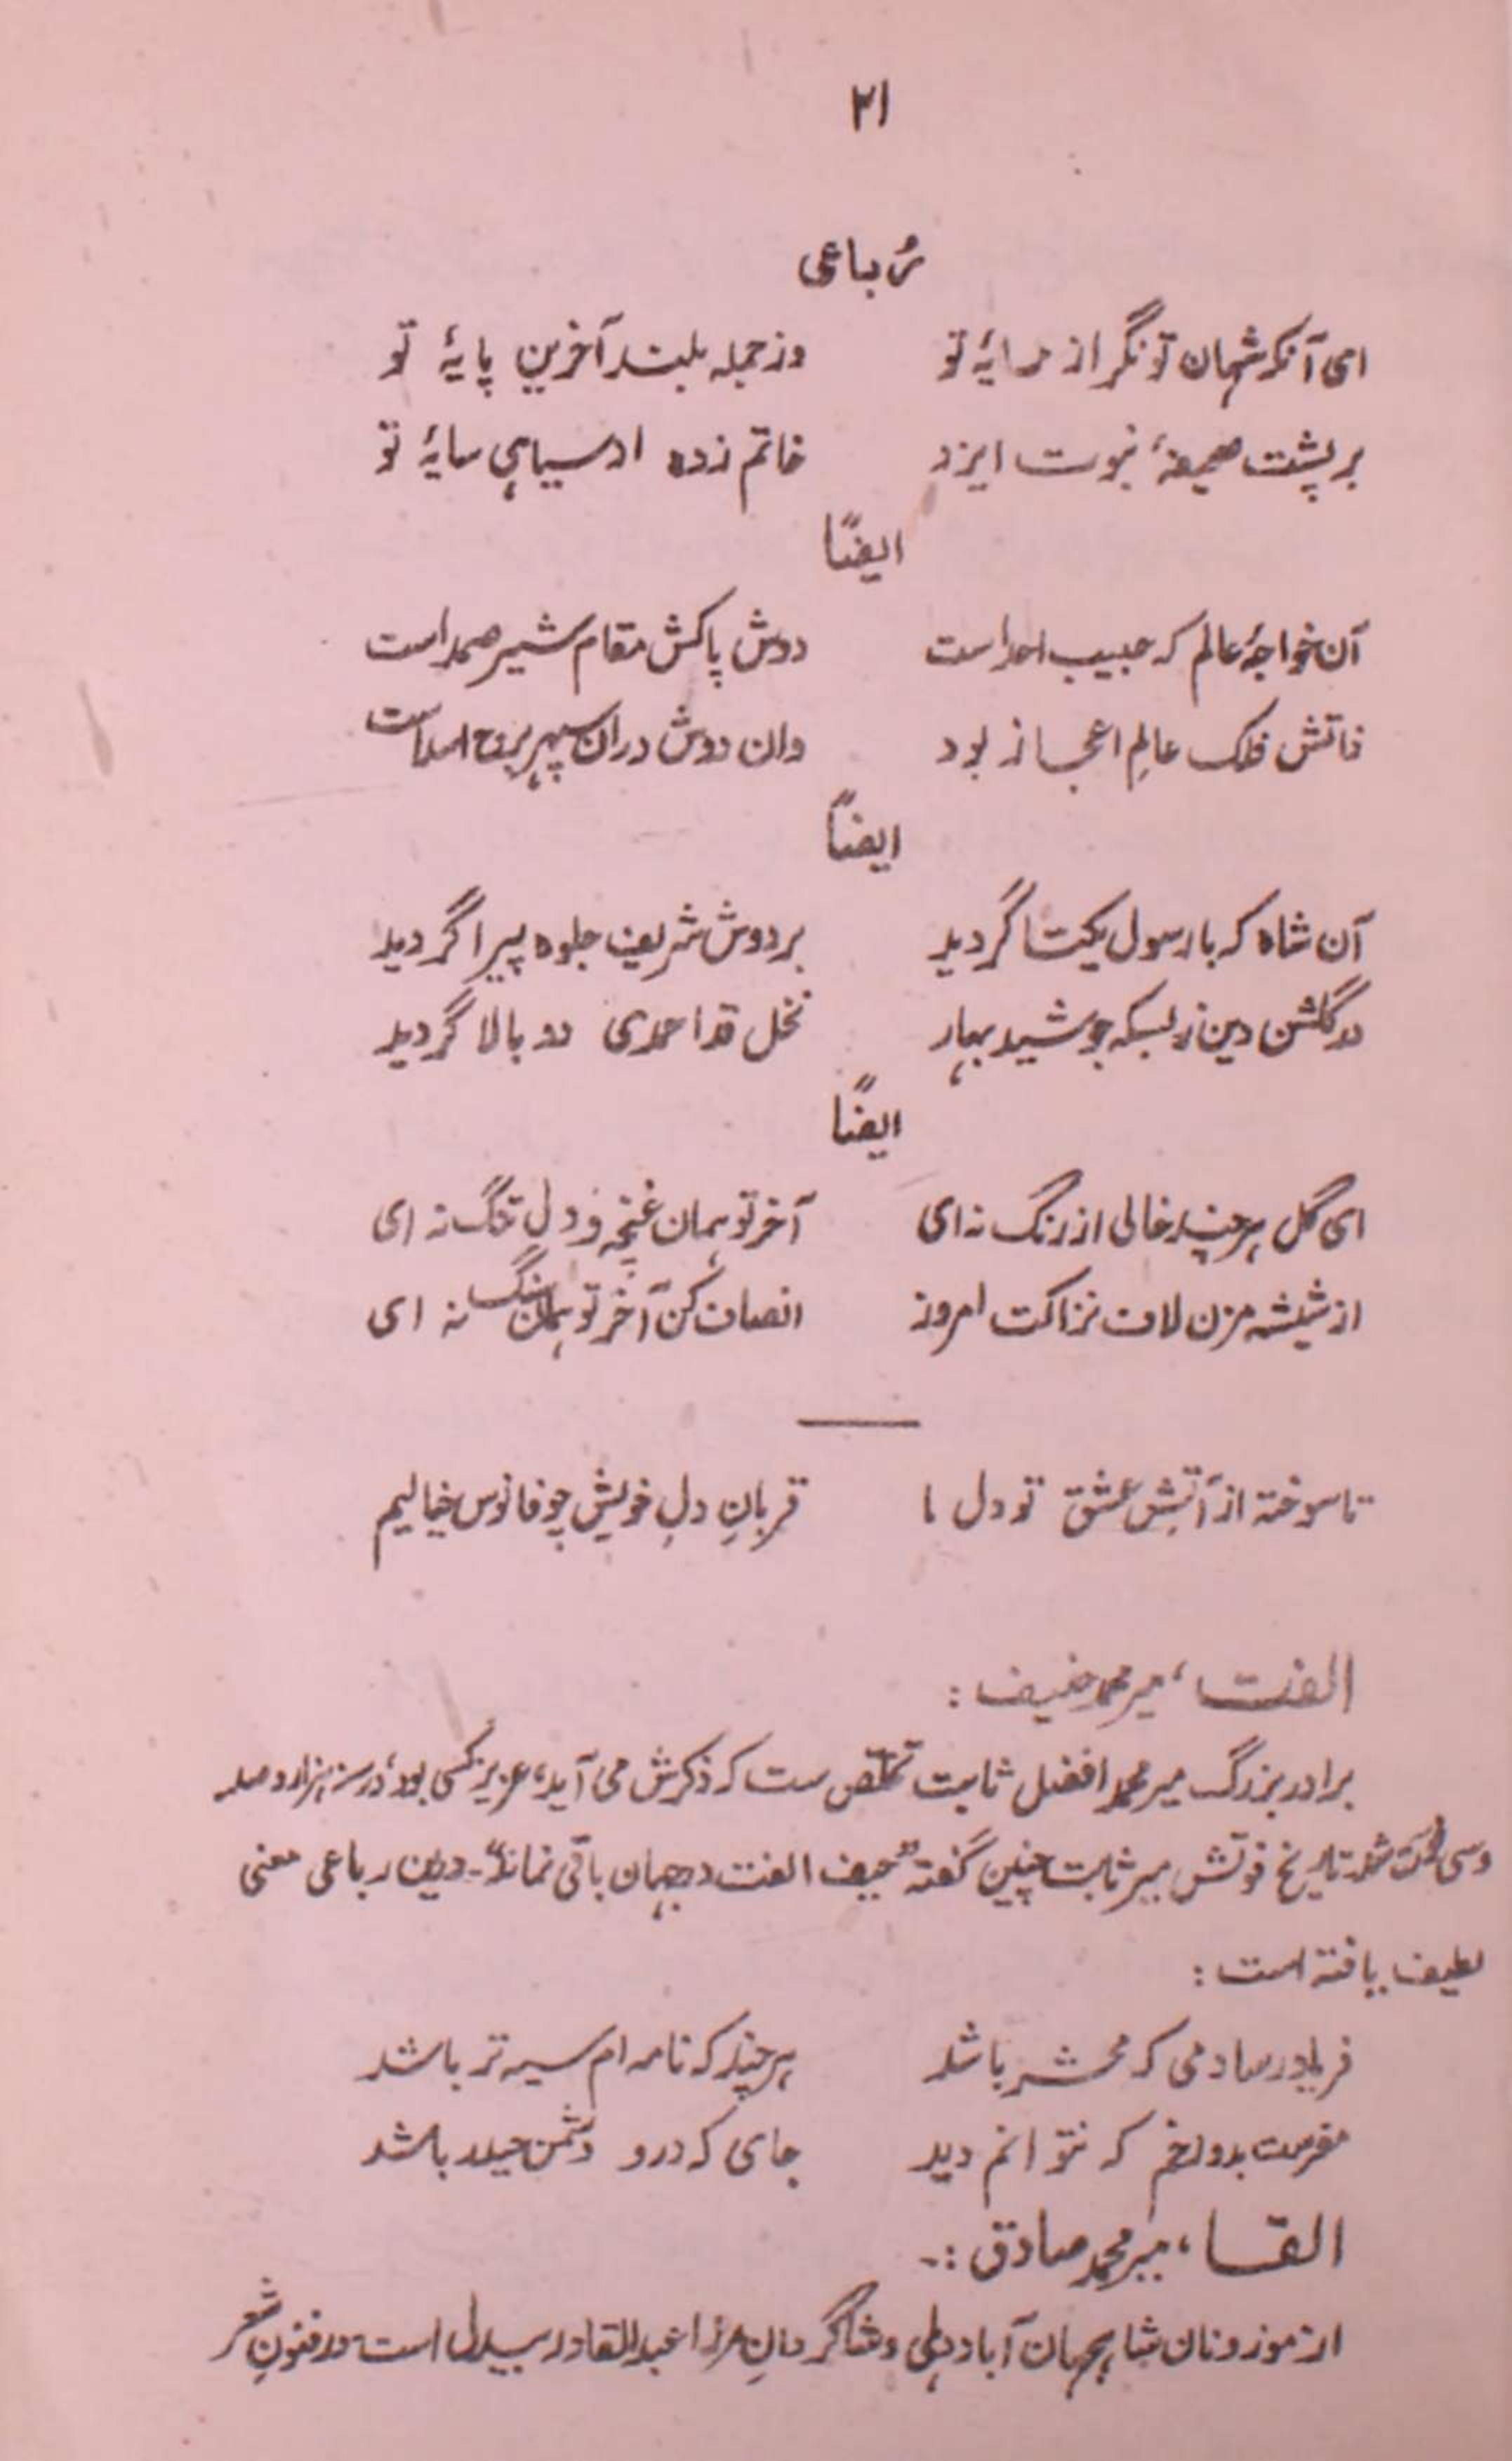 ۲۱
رُباعی
ای آنکہ شہان تونگر از سایۂ تو وز جملہ بلند آخرین پایۂ تو
بر پشت صحیفۂ نبوت ایزد خاتم زدہ از سیاہی سایۂ تو
ایضاً
آن خواجۂ عالم کہ حبیب احد است دوش پاکش مقام شیر صمد است
ذاتش فلک عالمِ اعجاز بود وان دوش دران سپہر برج اسد است
ایضاً
آن شاہ کہ با رسول یکتا گردید بر دوش شریف جلوہ پیرا گردید
در گلشن دین ز بسکہ جوشید بہار نخل قد احمدی دو بالا گردید
ایضاً
ای گل ہر چند خالی از رنگ نہ ای آخر تو ہمان غنچہ و دل تنگ نہ ای
از شیشہ مزن لاف نزاکت امروز انصاف کن آخر تو ہمان سنگ نہ ای
تا سوختہ از آتشِ عشق تو دل ما قربانِ دلِ خویش چو فانوس خیالیم
الفت، میر محمد حنیف :
برادر بزرگ میر محمد افضل ثابت تخلّص ست کہ ذکرش می آید، عزیز کسی بود، در سنہ ہزار و صد
و سی فوت شد تاریخ فوتش میر ثابت چنین گفتہ "حیف الفت در جہان باقی نماند"۔ درین رباعی معنی
لطیف یافتہ است :
فریاد رسا دمی کہ محشر باشد ہر چند کہ نامہ ام سیہ تر باشد
مفرست بدوزخم کہ نتوانم دید جای کہ درو دشمن حیدر باشد
القا، میر محمد صادق :۔
از موزونان شاہجہان آباد دہلی و شاگردانِ مرزا عبدالقادر بیدل است در فنونِ شعر